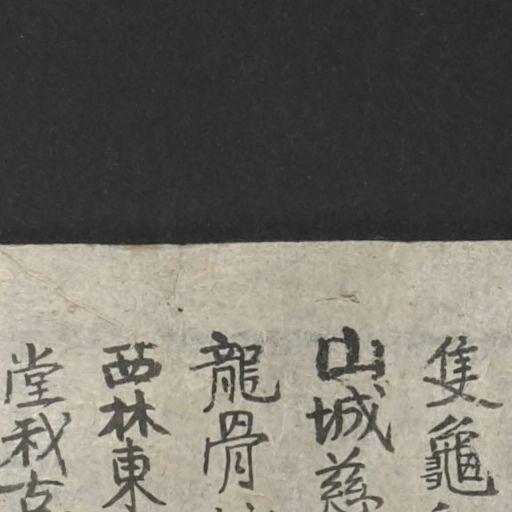 隻龜
山城慈
龍骨
西林東
堂秘古